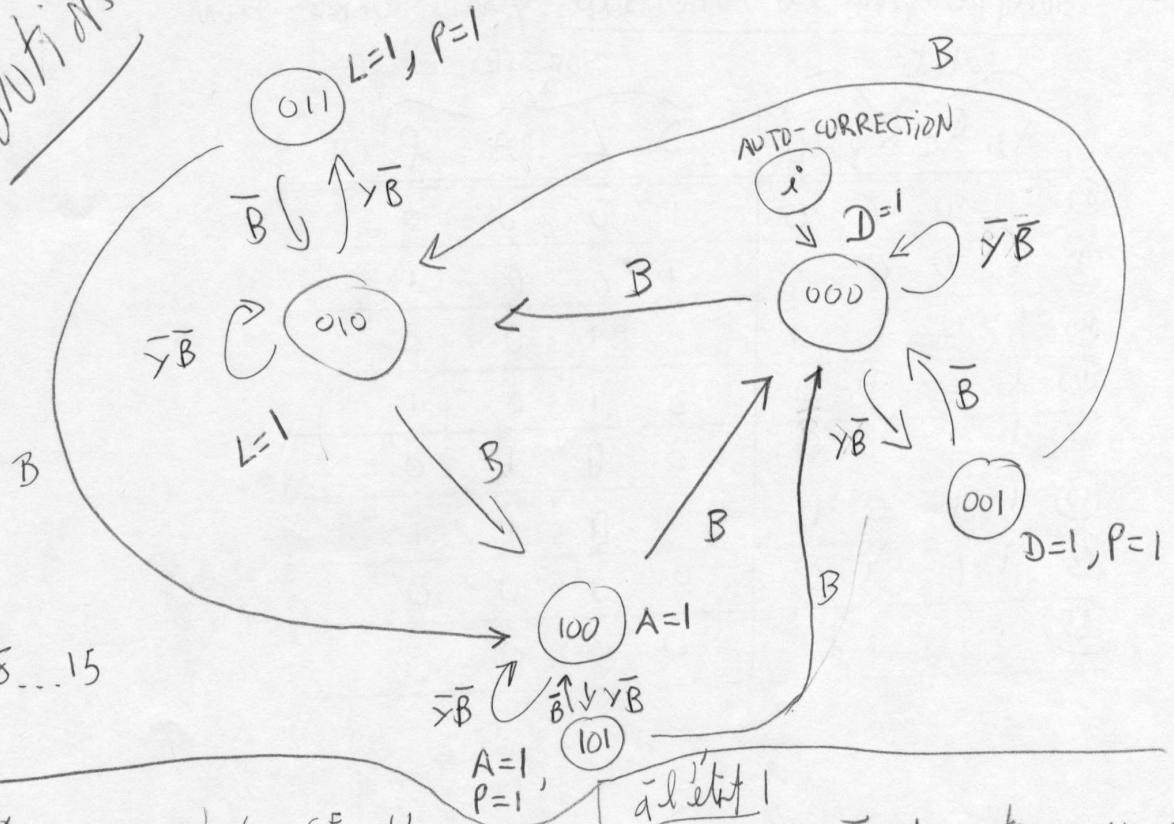 L=1, P=1
B
011
AUTO-CORRECTION
i
B̅
YB̅
D=1
Y̅B̅
B
000
010
Y̅B̅
B̅
YB̅
L=1
B
B
B
001
D=1, P=1
B
100
A=1
...15
Y̅B̅
B̅
YB̅
101
A=1,
P=1
à l'état 1